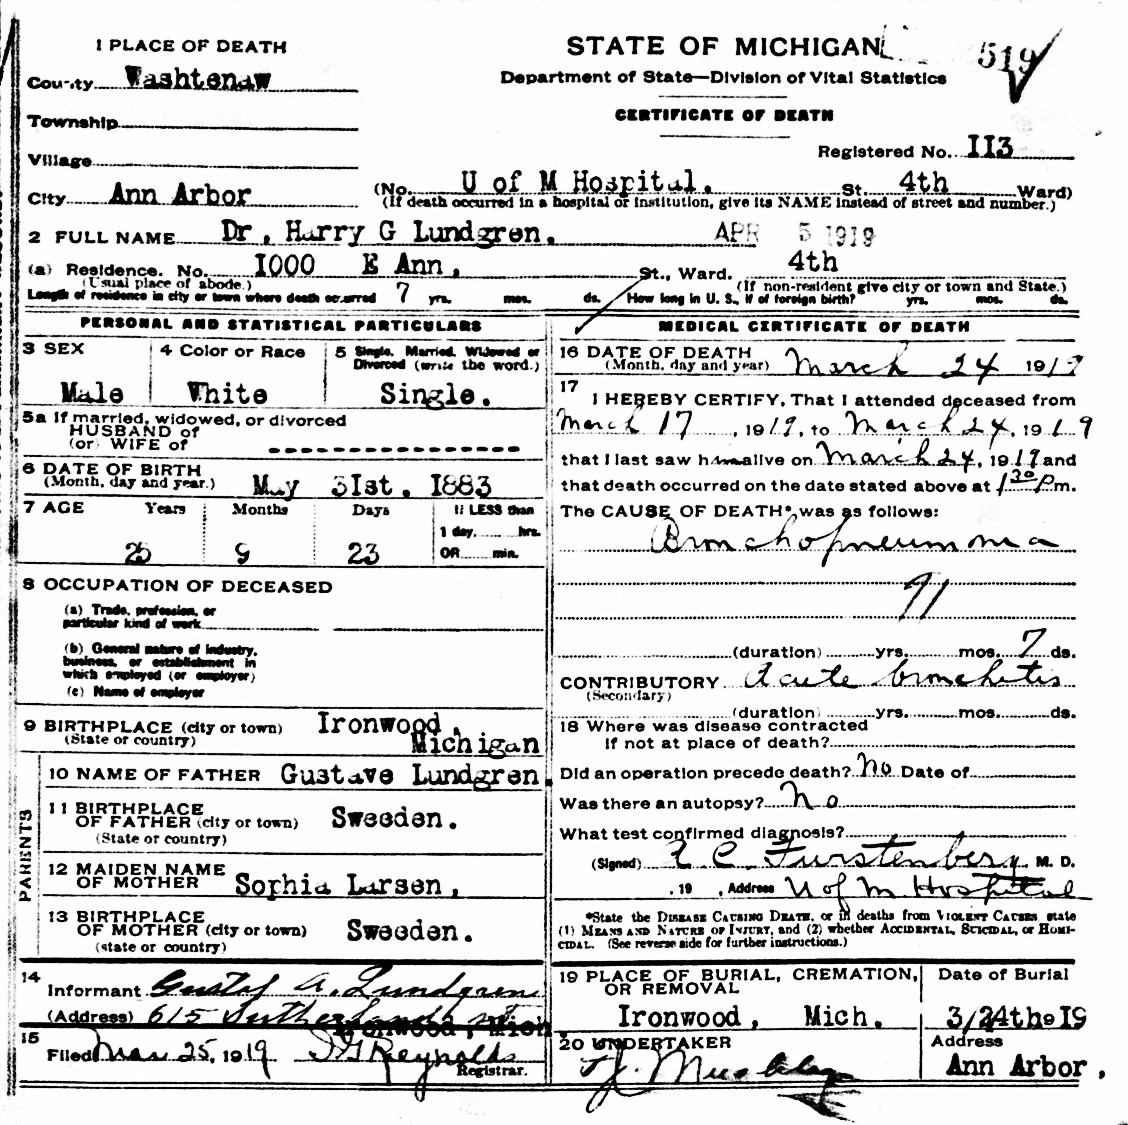 1 PLACE OF DEATH
County Washtenaw
Township
Village
City Ann Arbor
STATE OF MICHIGAN
519
Department of State—Division of Vital Statistics
CERTIFICATE OF DEATH
Registered No. II3
(No. U of M Hospital. St. 4th Ward)
(If death occurred in a hospital or institution, give its NAME instead of street and number.)
2 FULL NAME Dr, Harry G Lundgren. APR 5 1919
(a) Residence. No. I000 E Ann, St., Ward. 4th
(Usual place of abode.) (If non-resident give city or town and State.)
Length of residence in city or town where death occurred 7 yrs. mos. ds. How long in U. S., if of foreign birth? yrs. mos. ds.
PERSONAL AND STATISTICAL PARTICULARS
3 SEX
Male
4 Color or Race
White
5 Single, Married, Widowed or
Divorced (write the word.)
Single.
5a If married, widowed, or divorced
HUSBAND of
(or) WIFE of
6 DATE OF BIRTH
(Month, day and year.) May 3Ist. I883
7 AGE Years Months Days If LESS than
1 day, hrs.
OR min.
25 9 23
8 OCCUPATION OF DECEASED
(a) Trade, profession, or
particular kind of work
(b) General nature of industry,
business, or establishment in
which employed (or employer)
(c) Name of employer
9 BIRTHPLACE (city or town) Ironwood,
(State or country) Michigan
PARENTS
10 NAME OF FATHER Gustave Lundgren.
11 BIRTHPLACE
OF FATHER (city or town) Sweeden.
(State or country)
12 MAIDEN NAME
OF MOTHER Sophia Larsen,
13 BIRTHPLACE
OF MOTHER (city or town) Sweeden.
(state or country)
14
Informant Gustaf A. Lundgren
(Address) 615 Sutherland st
Ironwood, Mich
15
Filed Mar 25, 1919 Reynolds
Registrar.
MEDICAL CERTIFICATE OF DEATH
16 DATE OF DEATH
(Month, day and year) March 24 1919
17
I HEREBY CERTIFY, That I attended deceased from
March 17, 1919, to March 24, 1919
that I last saw him alive on March 24, 1919 and
that death occurred on the date stated above at 1 30 P m.
The CAUSE OF DEATH* was as follows:
Bronchopneumonia
91
(duration) yrs. mos. 7 ds.
CONTRIBUTORY Acute bronchitis
(Secondary)
(duration) yrs. mos. ds.
18 Where was disease contracted
if not at place of death?
Did an operation precede death? No Date of
Was there an autopsy? No
What test confirmed diagnosis?
(Signed) A C Furstenberg M. D.
, 19 , Address U of M Hospital
*State the DISEASE CAUSING DEATH, or in deaths from VIOLENT CAUSES, state
(1) MEANS AND NATURE OF INJURY, and (2) whether ACCIDENTAL, SUICIDAL, or HOMI-
CIDAL. (See reverse side for further instructions.)
19 PLACE OF BURIAL, CREMATION,
OR REMOVAL
Ironwood, Mich.
Date of Burial
3/24th 19 I9
20 UNDERTAKER
Address
Ann Arbor,